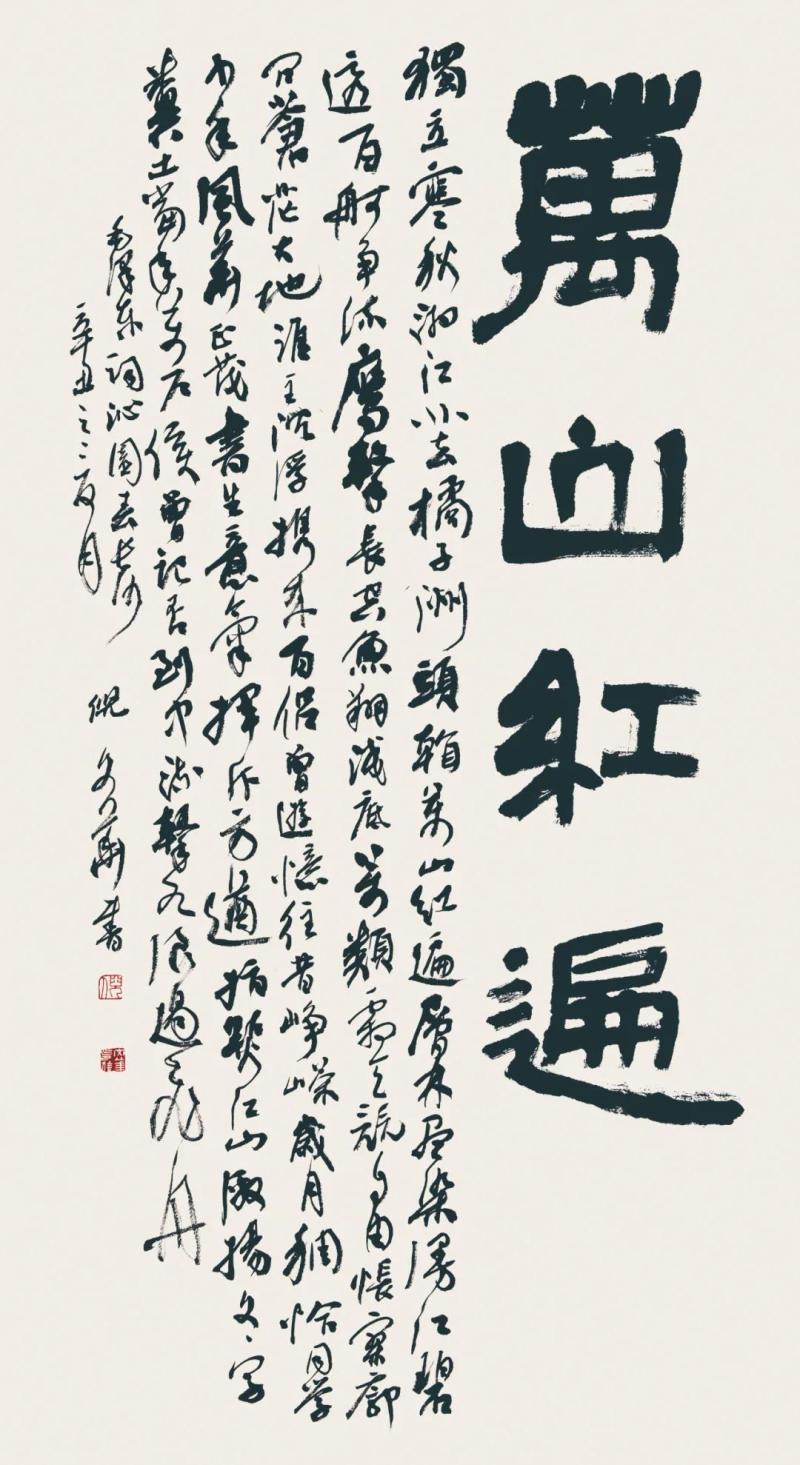 萬山紅遍
獨立寒秋湘江北去橘子洲頭看万山红遍層林尽染漫江碧
透百舸争流鷹擊長空魚翔浅底万類霜天競自由悵寥廓
问蒼茫大地谁主沉浮携来百侣曾遊憶往昔崢嶸歲月稠恰同学
少年風華正茂書生意氣揮斥方遒指點江山激揚文字
糞土當年万户侯曾记否到中流擊水浪遏飛舟
毛澤東词沁園春长沙
辛丑之夏月
倪文華書